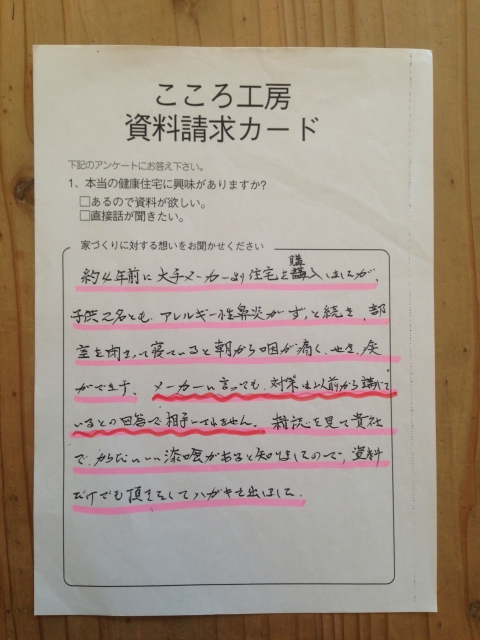 こころ工房
資料請求カード
下記のアンケートにお答え下さい。
1、本当の健康住宅に興味がありますか?
□あるので資料が欲しい。
□直接話が聞きたい。
家づくりに対する想いをお聞かせください
購
約4年前に大手メーカーより住宅を購入しましたが、
子供2名とも、アレルギー性鼻炎がずっと続き、部
室を閉まって寝ていると朝から咽が痛く、せき、炎
ができます。メーカーに言っても、対策は以前から講じて
いるとの回答で相手にされません。雑誌を見て貴社
で、からだにいい漆喰があると知りましたので、資料
だけでも頂きたくてハガキを出しました。